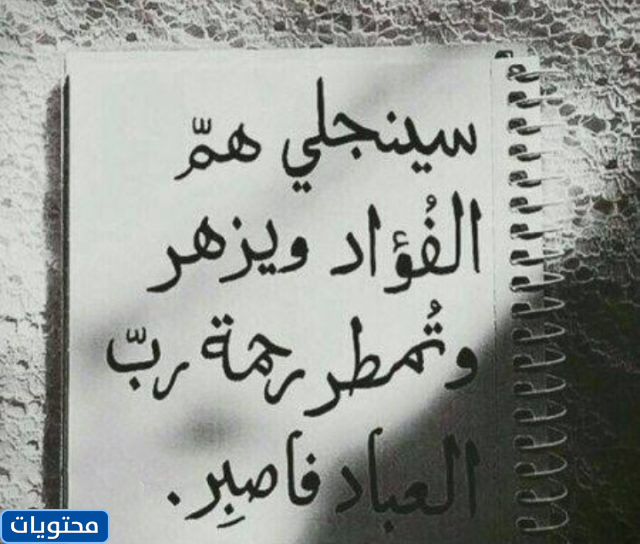 سينجلي همّ
الفُؤاد ويزهر
وتُمطر رحمة ربّ
العباد فاصبِر.
محتويات